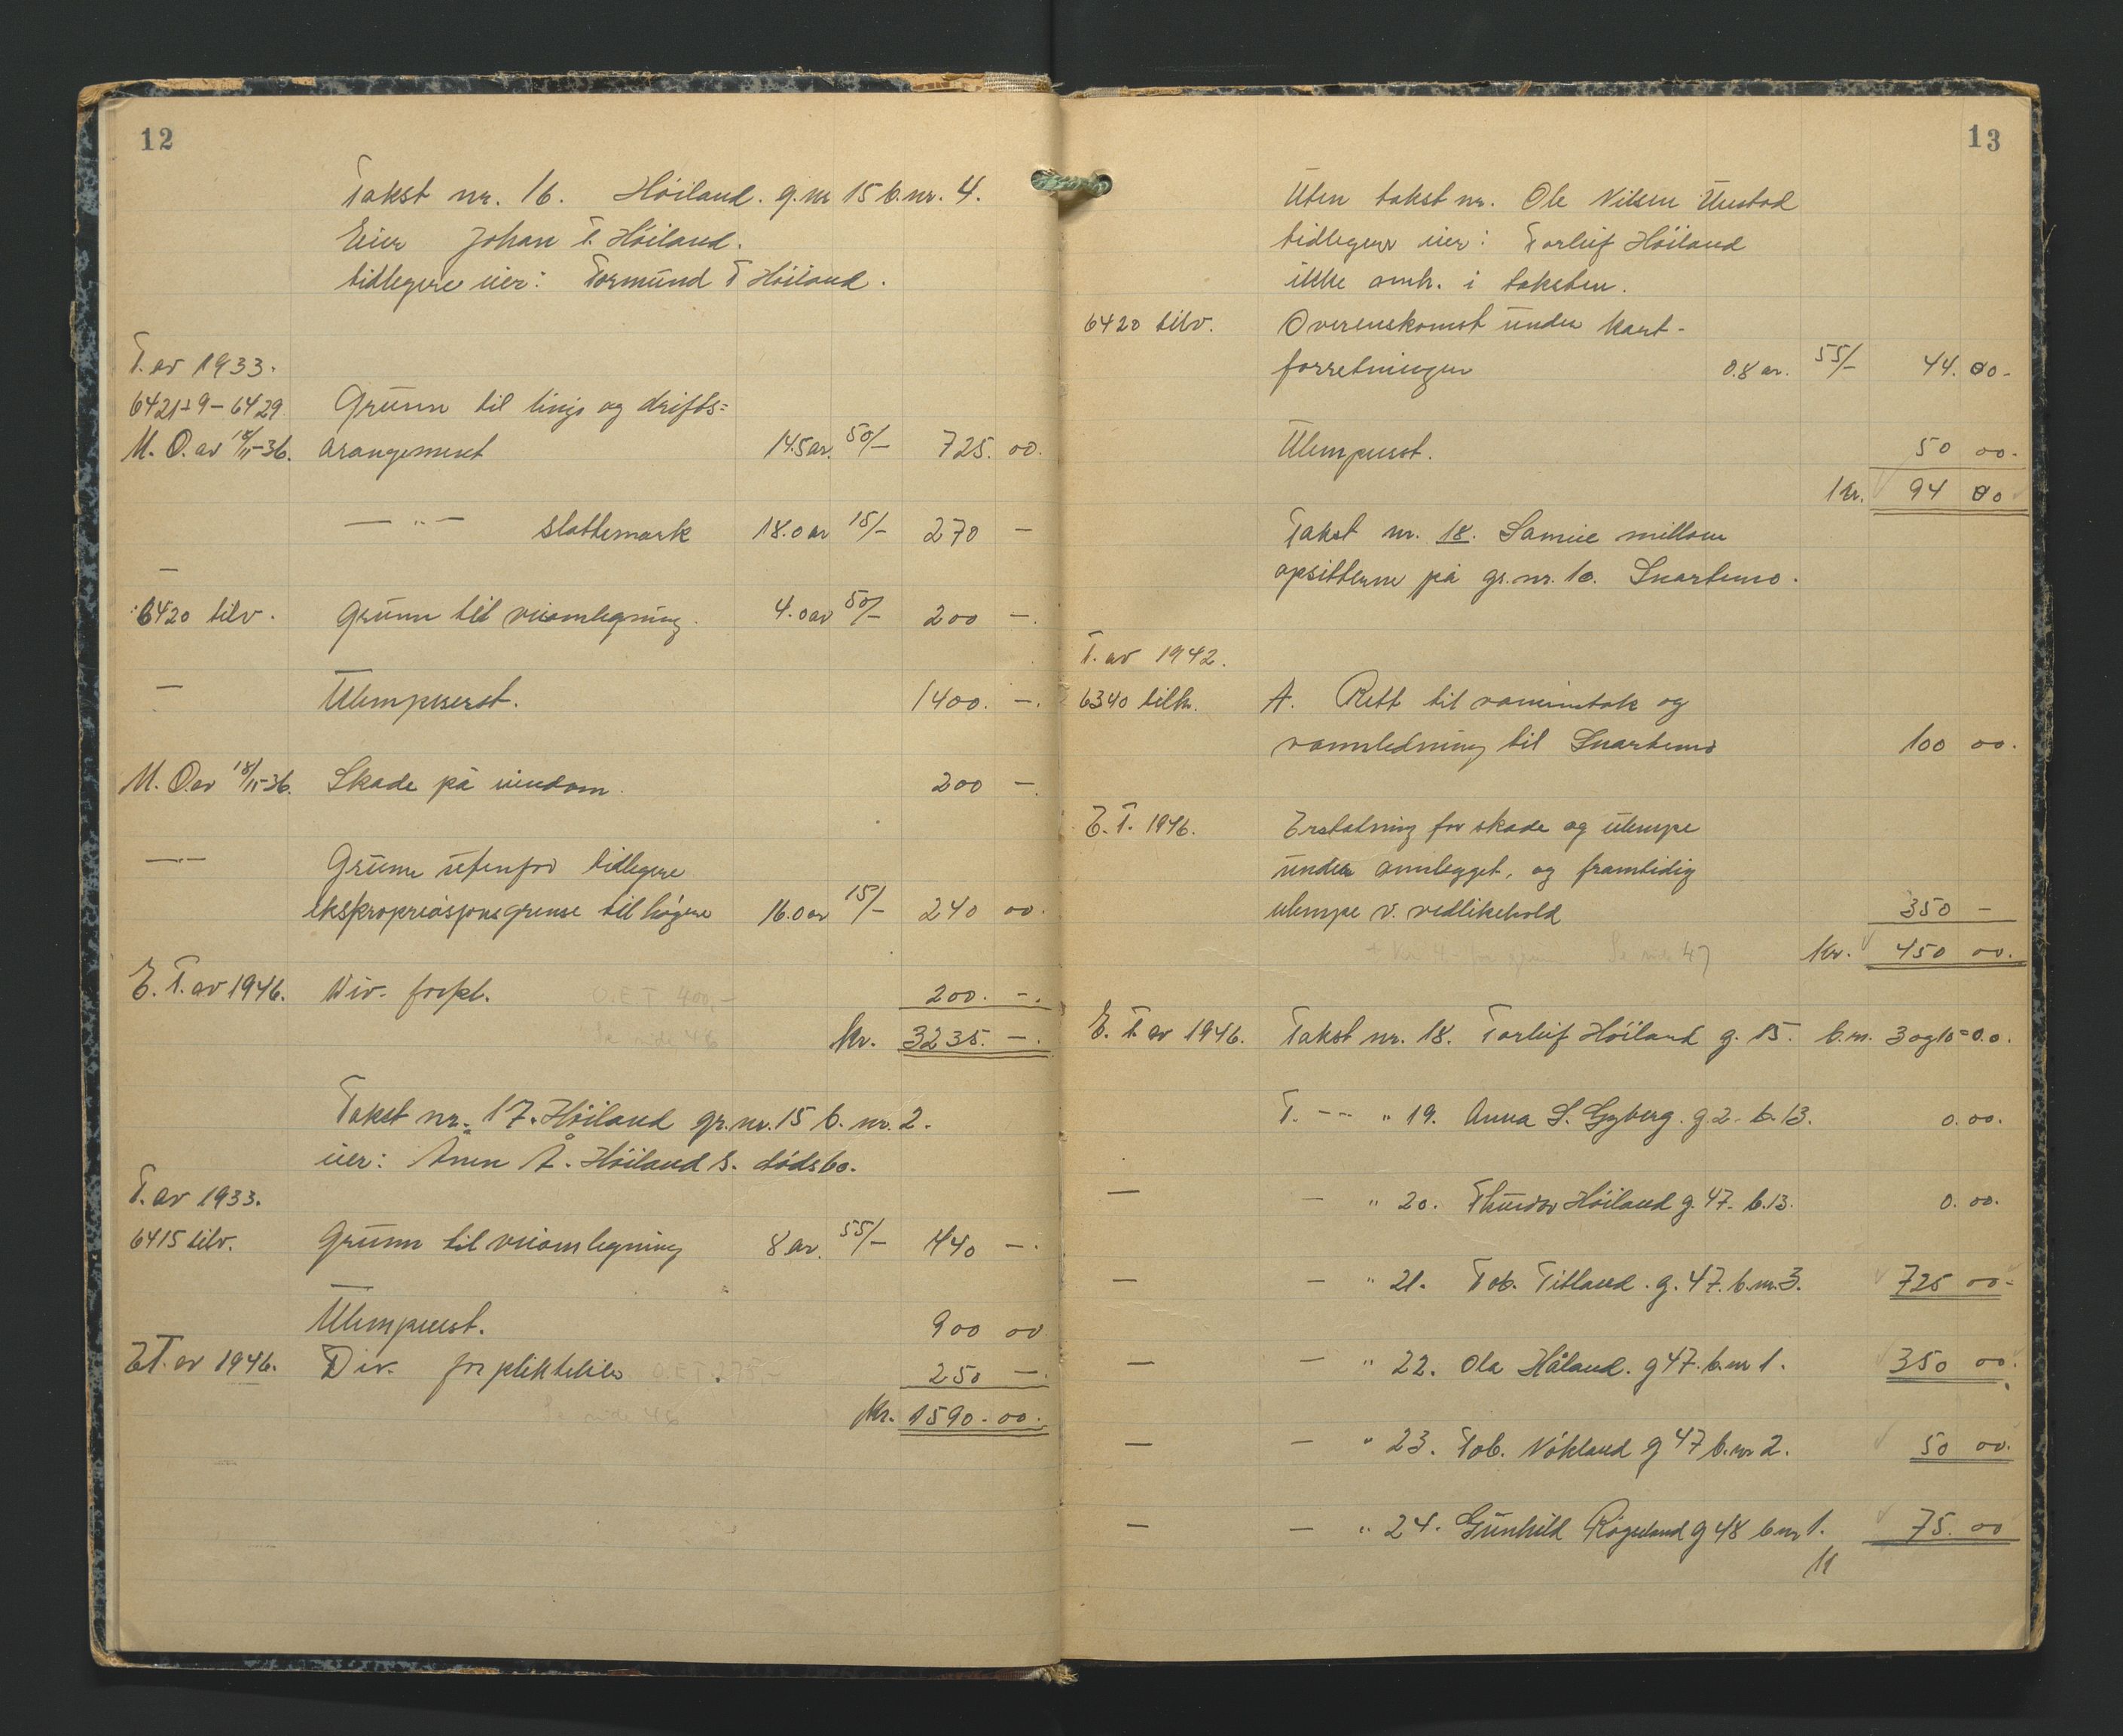 12
Takst nr. 16. Höiland. g.nr 15 b.nr. 4.
Eier Johan T. Höiland.
tidlegere eier: Tormund T Höiland.
T. av 1933.
6421+9-6429 Grunn til linje og drifts=
M.O. av 18/11-36. arangement 14.5 ar. 50/- 725. 00.
— " — slåttemark 18.0 ar 15/- 270 —
—
6420 tilv. Grunn til veiomlegning. 4.0 ar 50/- 200 —.
— Ulempeerst. 1400. —.
M. O. av 18/11-36. Skade på eiendom. 200 —.
—"— Grunn utenfor tidlegere
ekspropriasjonsgrense til högere 16.0 ar 15/- 240 00.
E. T. av 1946. Div. forpl. O.E.T. 400,- 200. —.
Se side 46 kr. 3235. —.
Takst nr. 17. Höiland gr.nr. 15 b. nr. 2.
eier: Å. Höiland s. dödsbo.
T. av 1933.
6415 tilv. Grunn til veiomlegning 8 ar. 55/- 440 —.
Ulempeerst. 900 00
E.T. av 1946. Div. forpliktelser O.E.T. 275,- 250 —.
Se side 46 Kr. 1590.00.
13
Uten takst nr. Ole Nilsen
tidlegere eier: Torleif Höiland
ikke omh. i taksten.
6420 tilv. Overenskomst under kart-
forretningen 0.8 ar. 55/- 44. 00-
Ulempeerst. 50 00.
Kr. 94 00
Takst nr. 18. Sameie mellom
opsitterne på gr.nr. 10. Snartemo.
T. av 1942.
6340 tilh. A. Rett til vanninntak og
vannledning til Snartemo 100 00.
E. T. 1946. Erstatning for skade og ulempe
under annlegget, og framtidig
ulempe v. vedlikehold 350 —
Se side 47 Kr. 450 00.
E. T. av 1946. Takst nr. 18. Torleif Höiland g. 15. b.nr. 3 og 10 = 0.0.
T. -- " 19. Anna S. Gyberg. g 2. b. 13. 0.00.
— — " 20. Höiland g. 47. b.13. 0.00.
— — " 21. Tob. Titland. g. 47. b.nr. 3. 725 00-
— — " 22. Ola Håland. g 47. b.nr 1. 350 00.
— — " 23. Tob. Nökland g 47 b.nr 2. 50 00.
— — " 24. Gunhild g 48 b nr 1. 75. 00